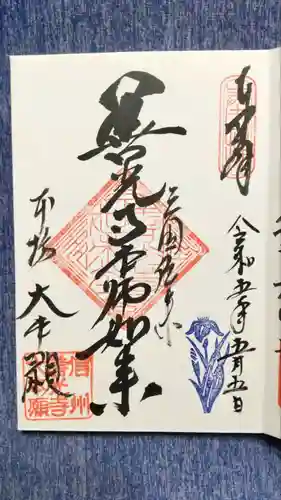 奉拝
令和五年五月五日
三国伝来
善光寺本師如来
本坊 大本願
信州
善光寺
大本願